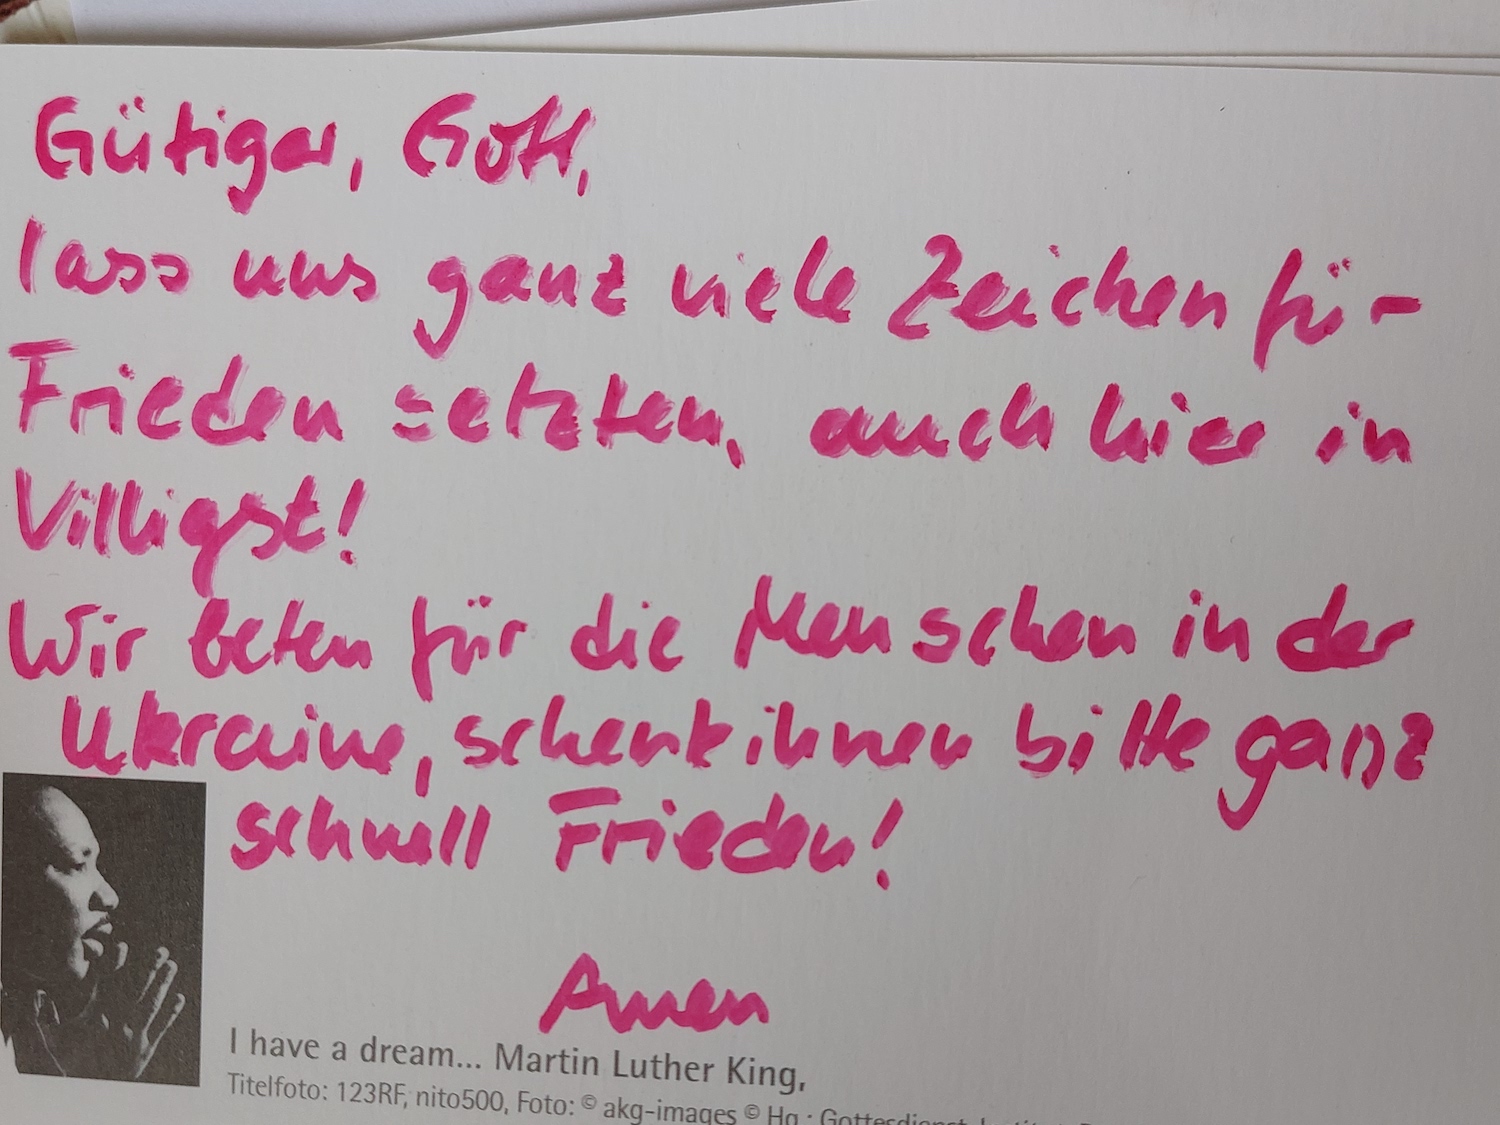 Gütiger, Gott,
lass uns ganz viele Zeichen für
Frieden setzten, auch hier in
Villigst!
Wir beten für die Menschen in der
Ukraine, schenk ihnen bitte ganz
schnell Frieden!
Amen
I have a dream... Martin Luther King,
Titelfoto: 123RF, nito500, Foto: © akg-images © Hg.: Gottesdienst